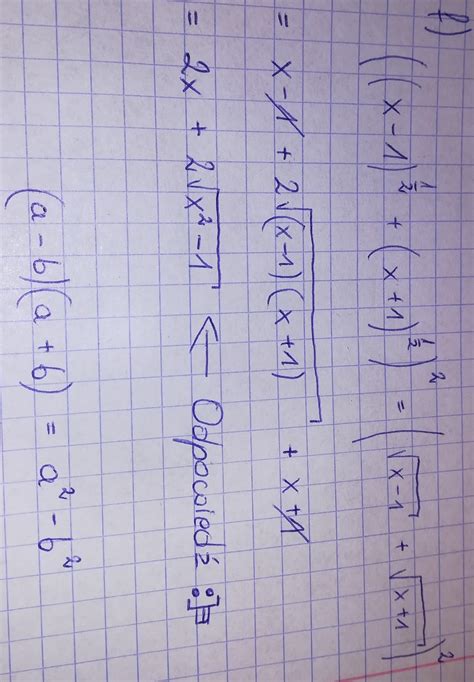 f)
((x-1)^{1/2} + (x+1)^{1/2})^2 = (√(x-1) + √(x+1))^2
= x-1 + 2√((x-1)(x+1)) + x+1
= 2x + 2√(x^2-1) ← Odpowiedź :]
(a-b)(a+b) = a^2 - b^2